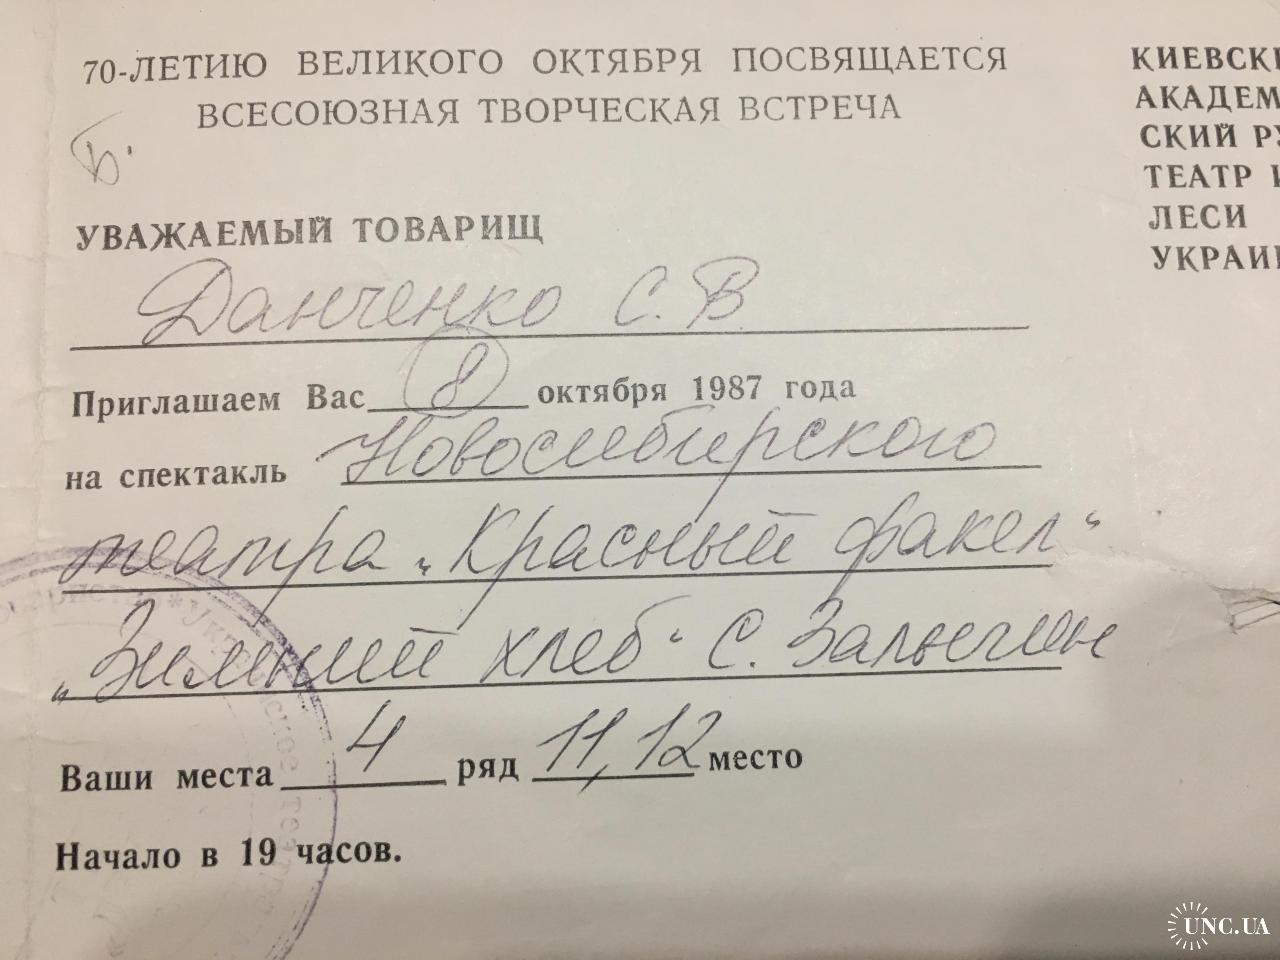 70-ЛЕТИЮ ВЕЛИКОГО ОКТЯБРЯ ПОСВЯЩАЕТСЯ
ВСЕСОЮЗНАЯ ТВОРЧЕСКАЯ ВСТРЕЧА
Б.
УВАЖАЕМЫЙ ТОВАРИЩ
Данченко С. В
Приглашаем Вас 8 октября 1987 года
на спектакль Новосибирского
театра „Красный факел“
„Зимний хлеб“ С. Залыгин
Ваши места 4 ряд 11, 12 место
Начало в 19 часов.
КИЕВСКИ
АКАДЕМ
СКИЙ РУ
ТЕАТР И
ЛЕСИ
УКРАИН
UNC.UA